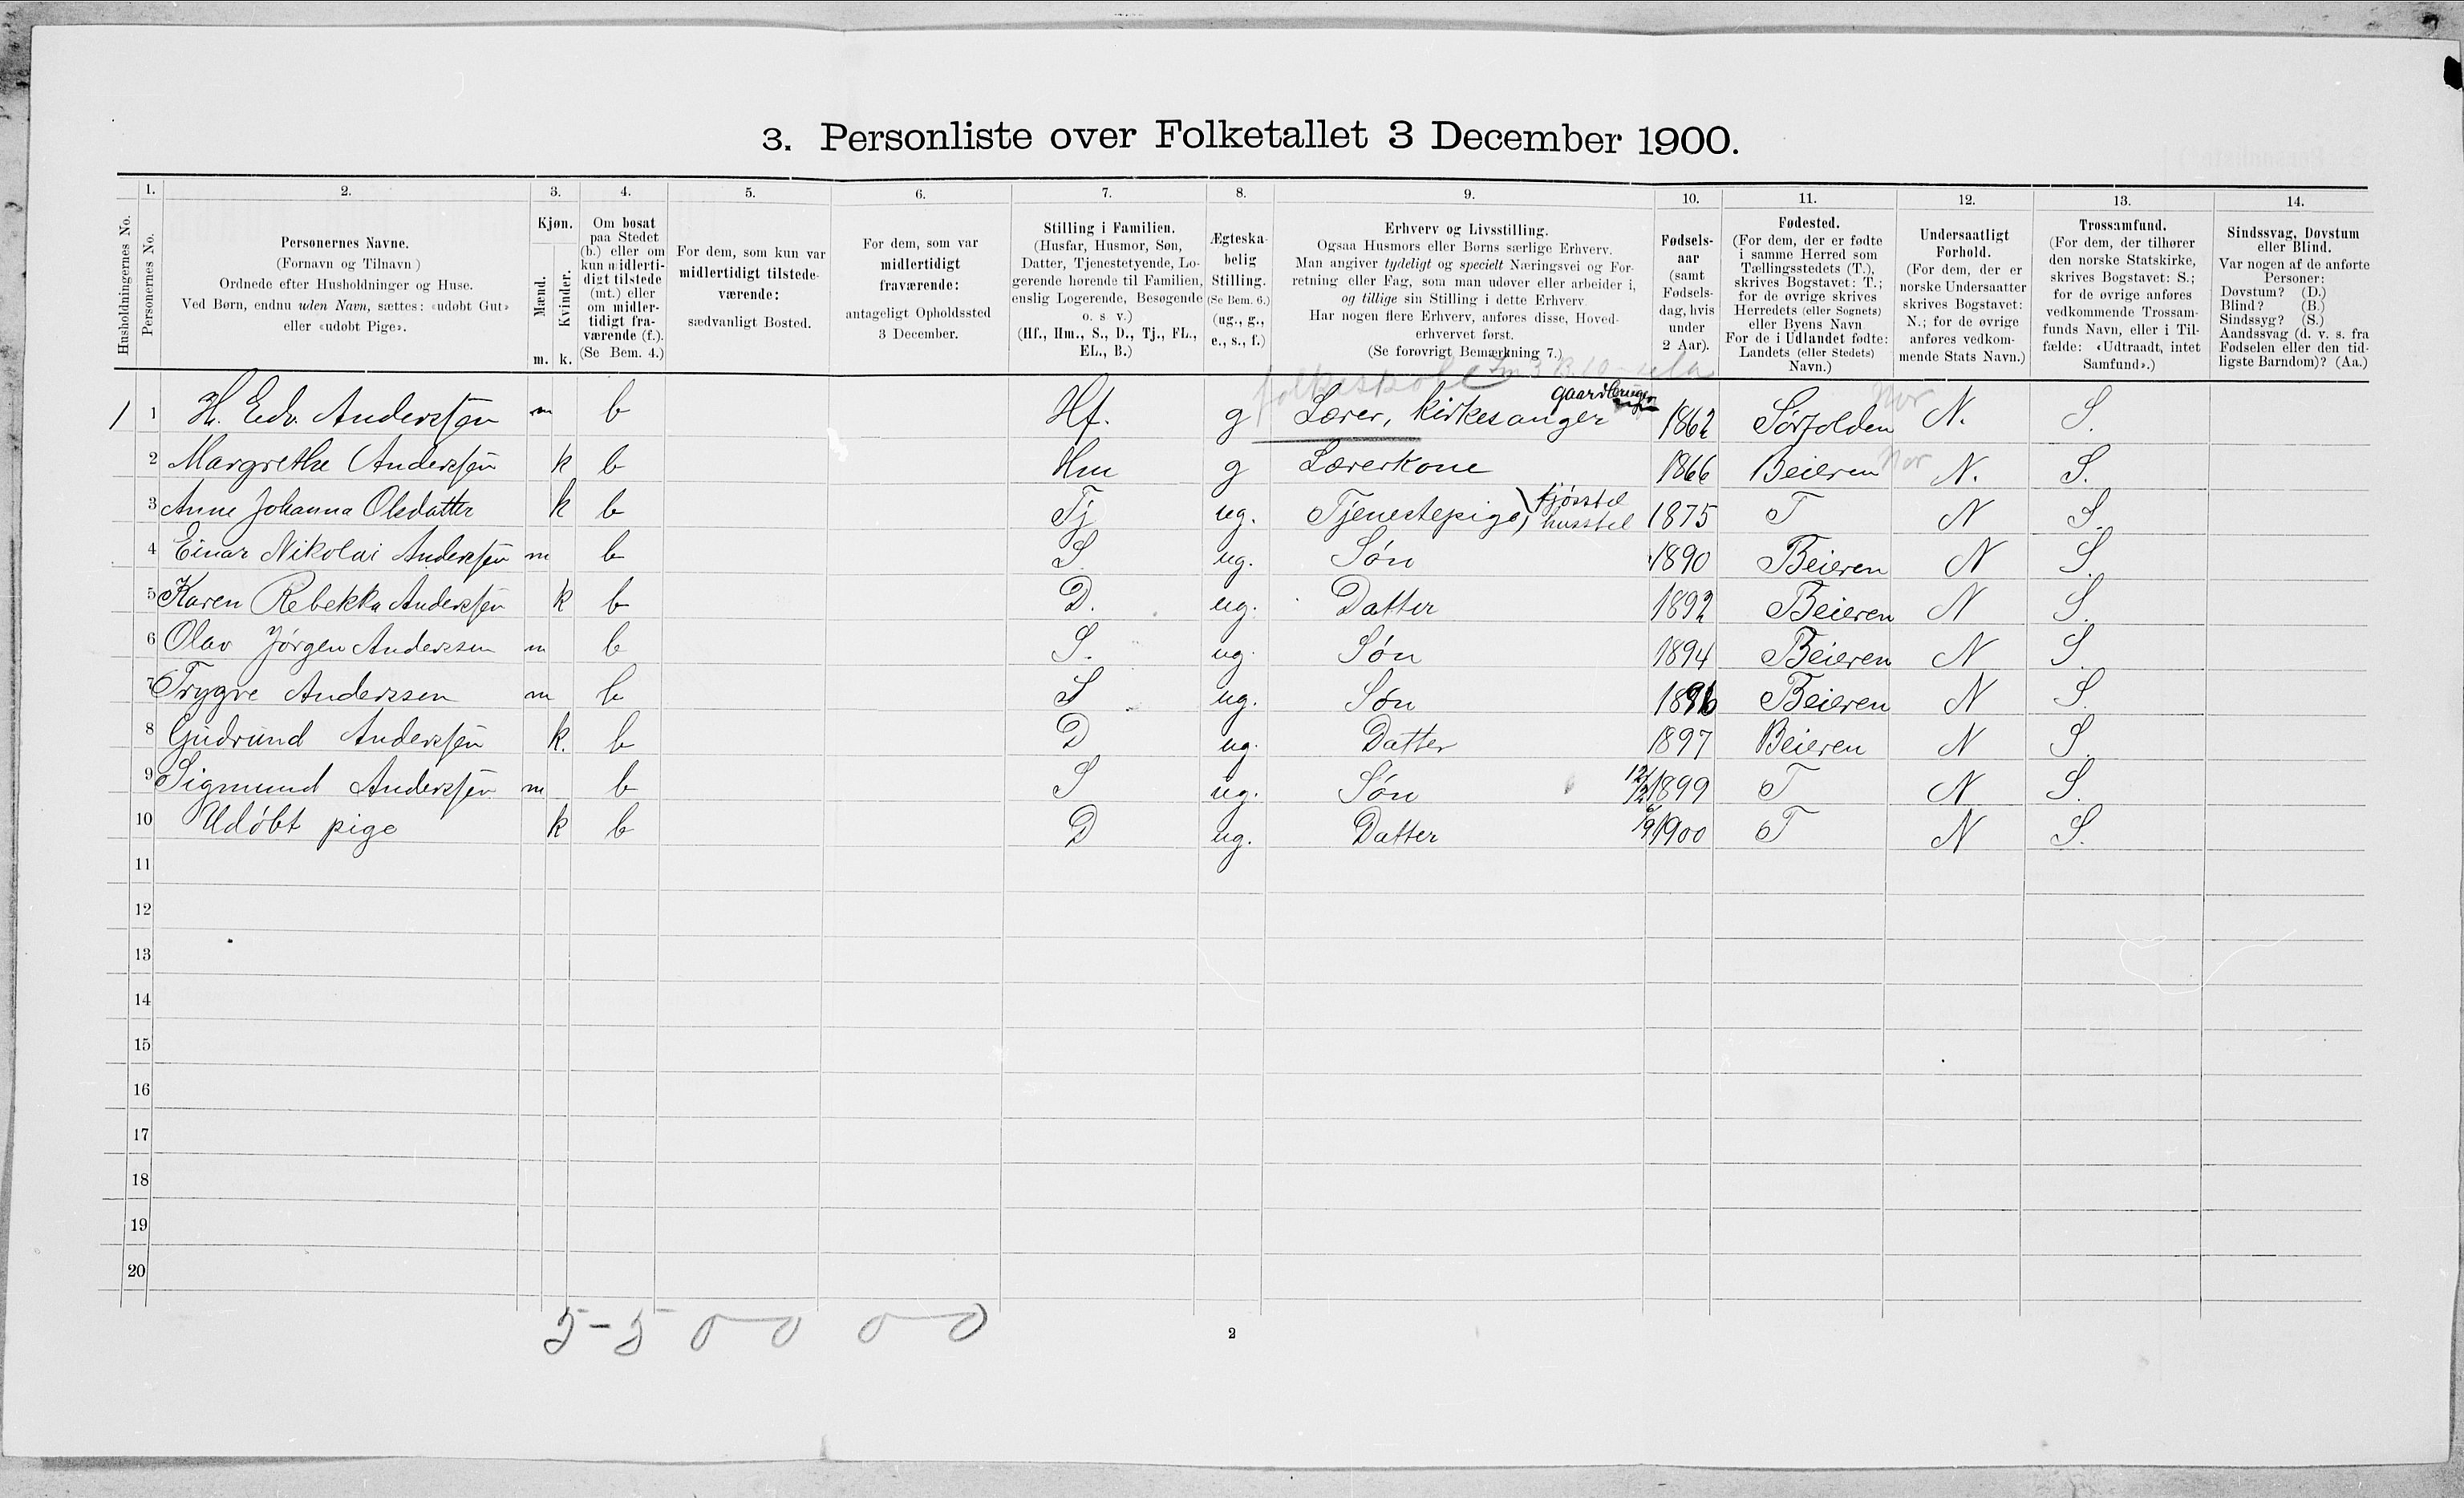 3. Personliste over Folketallet 3 December 1900.
1. 2. 3. 4. 5. 6. 7. 8. 9. 10. 11. 12. 13. 14.
Husholdningernes No.
Personernes No.
Personernes Navne.
(Fornavn og Tilnavn.)
Ordnede efter Husholdninger og Huse.
Ved Børn, endnu uden Navn, sættes: «udøbt Gut»
eller «udøbt Pige».
Kjøn.
Mænd.
Kvinder.
m. k.
Om bosat
paa Stedet
(b.) eller om
kun midlerti-
digt tilstede
(mt.) eller
om midler-
tidigt fra-
værende (f.).
(Se Bem. 4.)
For dem, som kun var
midlertidigt tilstede-
værende:
sædvanligt Bosted.
For dem, som var
midlertidigt
fraværende:
antageligt Opholdssted
3 December.
Stilling i Familien.
(Husfar, Husmor, Søn,
Datter, Tjenestetyende, Lo-
gerende hørende til Familien,
enslig Logerende, Besøgende
o. s v.)
(Hf., Hm., S., D., Tj., FL.,
EL., B.)
Ægteska-
belig
Stilling.
(Se Bem. 6.)
(ug., g.,
e., s., f.)
Erhverv og Livsstilling.
Ogsaa Husmors eller Børns særlige Erhverv.
Man angiver tydeligt og specielt Næringsvei og For-
retning eller Fag, som man udøver eller arbeider i,
og tillige sin Stilling i dette Erhverv.
Har nogen flere Erhverv, anføres disse, Hoved-
erhvervet først.
(Se forøvrigt Bemærkning 7.)
Fødsels-
aar
(samt
Fødsels-
dag, hvis
under
2 Aar).
Fødested.
(For dem, der er fødte
i samme Herred som
Tællingsstedets (T.),
skrives Bogstavet: T.;
for de øvrige skrives
Herredets (eller Sognets)
eller Byens Navn.
For de i Udlandet fødte:
Landets (eller Stedets)
Navn.)
Undersaatligt
Forhold.
(For dem, der er
norske Undersaatter
skrives Bogstavet:
N.; for de øvrige
anføres vedkom-
mende Stats Navn.)
Trossamfund.
(For dem, der tilhører
den norske Statskirke,
skrives Bogstavet: S.;
for de øvrige anføres
vedkommende Trossam-
funds Navn, eller i Til-
fælde: «Udtraadt, intet
Samfund».)
Sindssvag, Døvstum
eller Blind.
Var nogen af de anførte
Personer:
Døvstum? (D.)
Blind? (B.)
Sindssyg? (S.)
Aandssvag (d. v. s. fra
Fødselen eller den tid-
ligste Barndom)? (Aa.)
folkeskole
gaardbruger
1 1 H. Edv. Anderssen m b Hf. g Lærer, kirkesanger 1862 Sørfolden Nor N. S.
2 Margrethe Anderssen k b Hm g Lærerkone 1866 Beieren Nor N. S.
3 Anne Johanna Olsdatter k b Tj ug. Tjenestepige) fjøsstel husstel 1875 T N S.
4 Einar Nikolai Anderssen m b S. ug. Søn 1890 Beieren N S.
5 Karen Rebekka Anderssen k b D. ug. Datter 1892 Beieren N S.
6 Olav Jørgen Anderssen m b S. ug. Søn 1894 Beieren N S.
7 Trygve Anderssen m b S ug. Søn 1896 Beieren N S.
8 Gudrund Anderssen k. b D ug. Datter 1897 Beieren N S.
9 Sigmund Anderssen m b S ug. Søn 12/2 1899 T N S.
10 Udøbt pige k b D ug. Datter 6/9 1900 T N S.
11
12
13
14
15
16
17
18
19
20
5-5 0-0 0-0
2